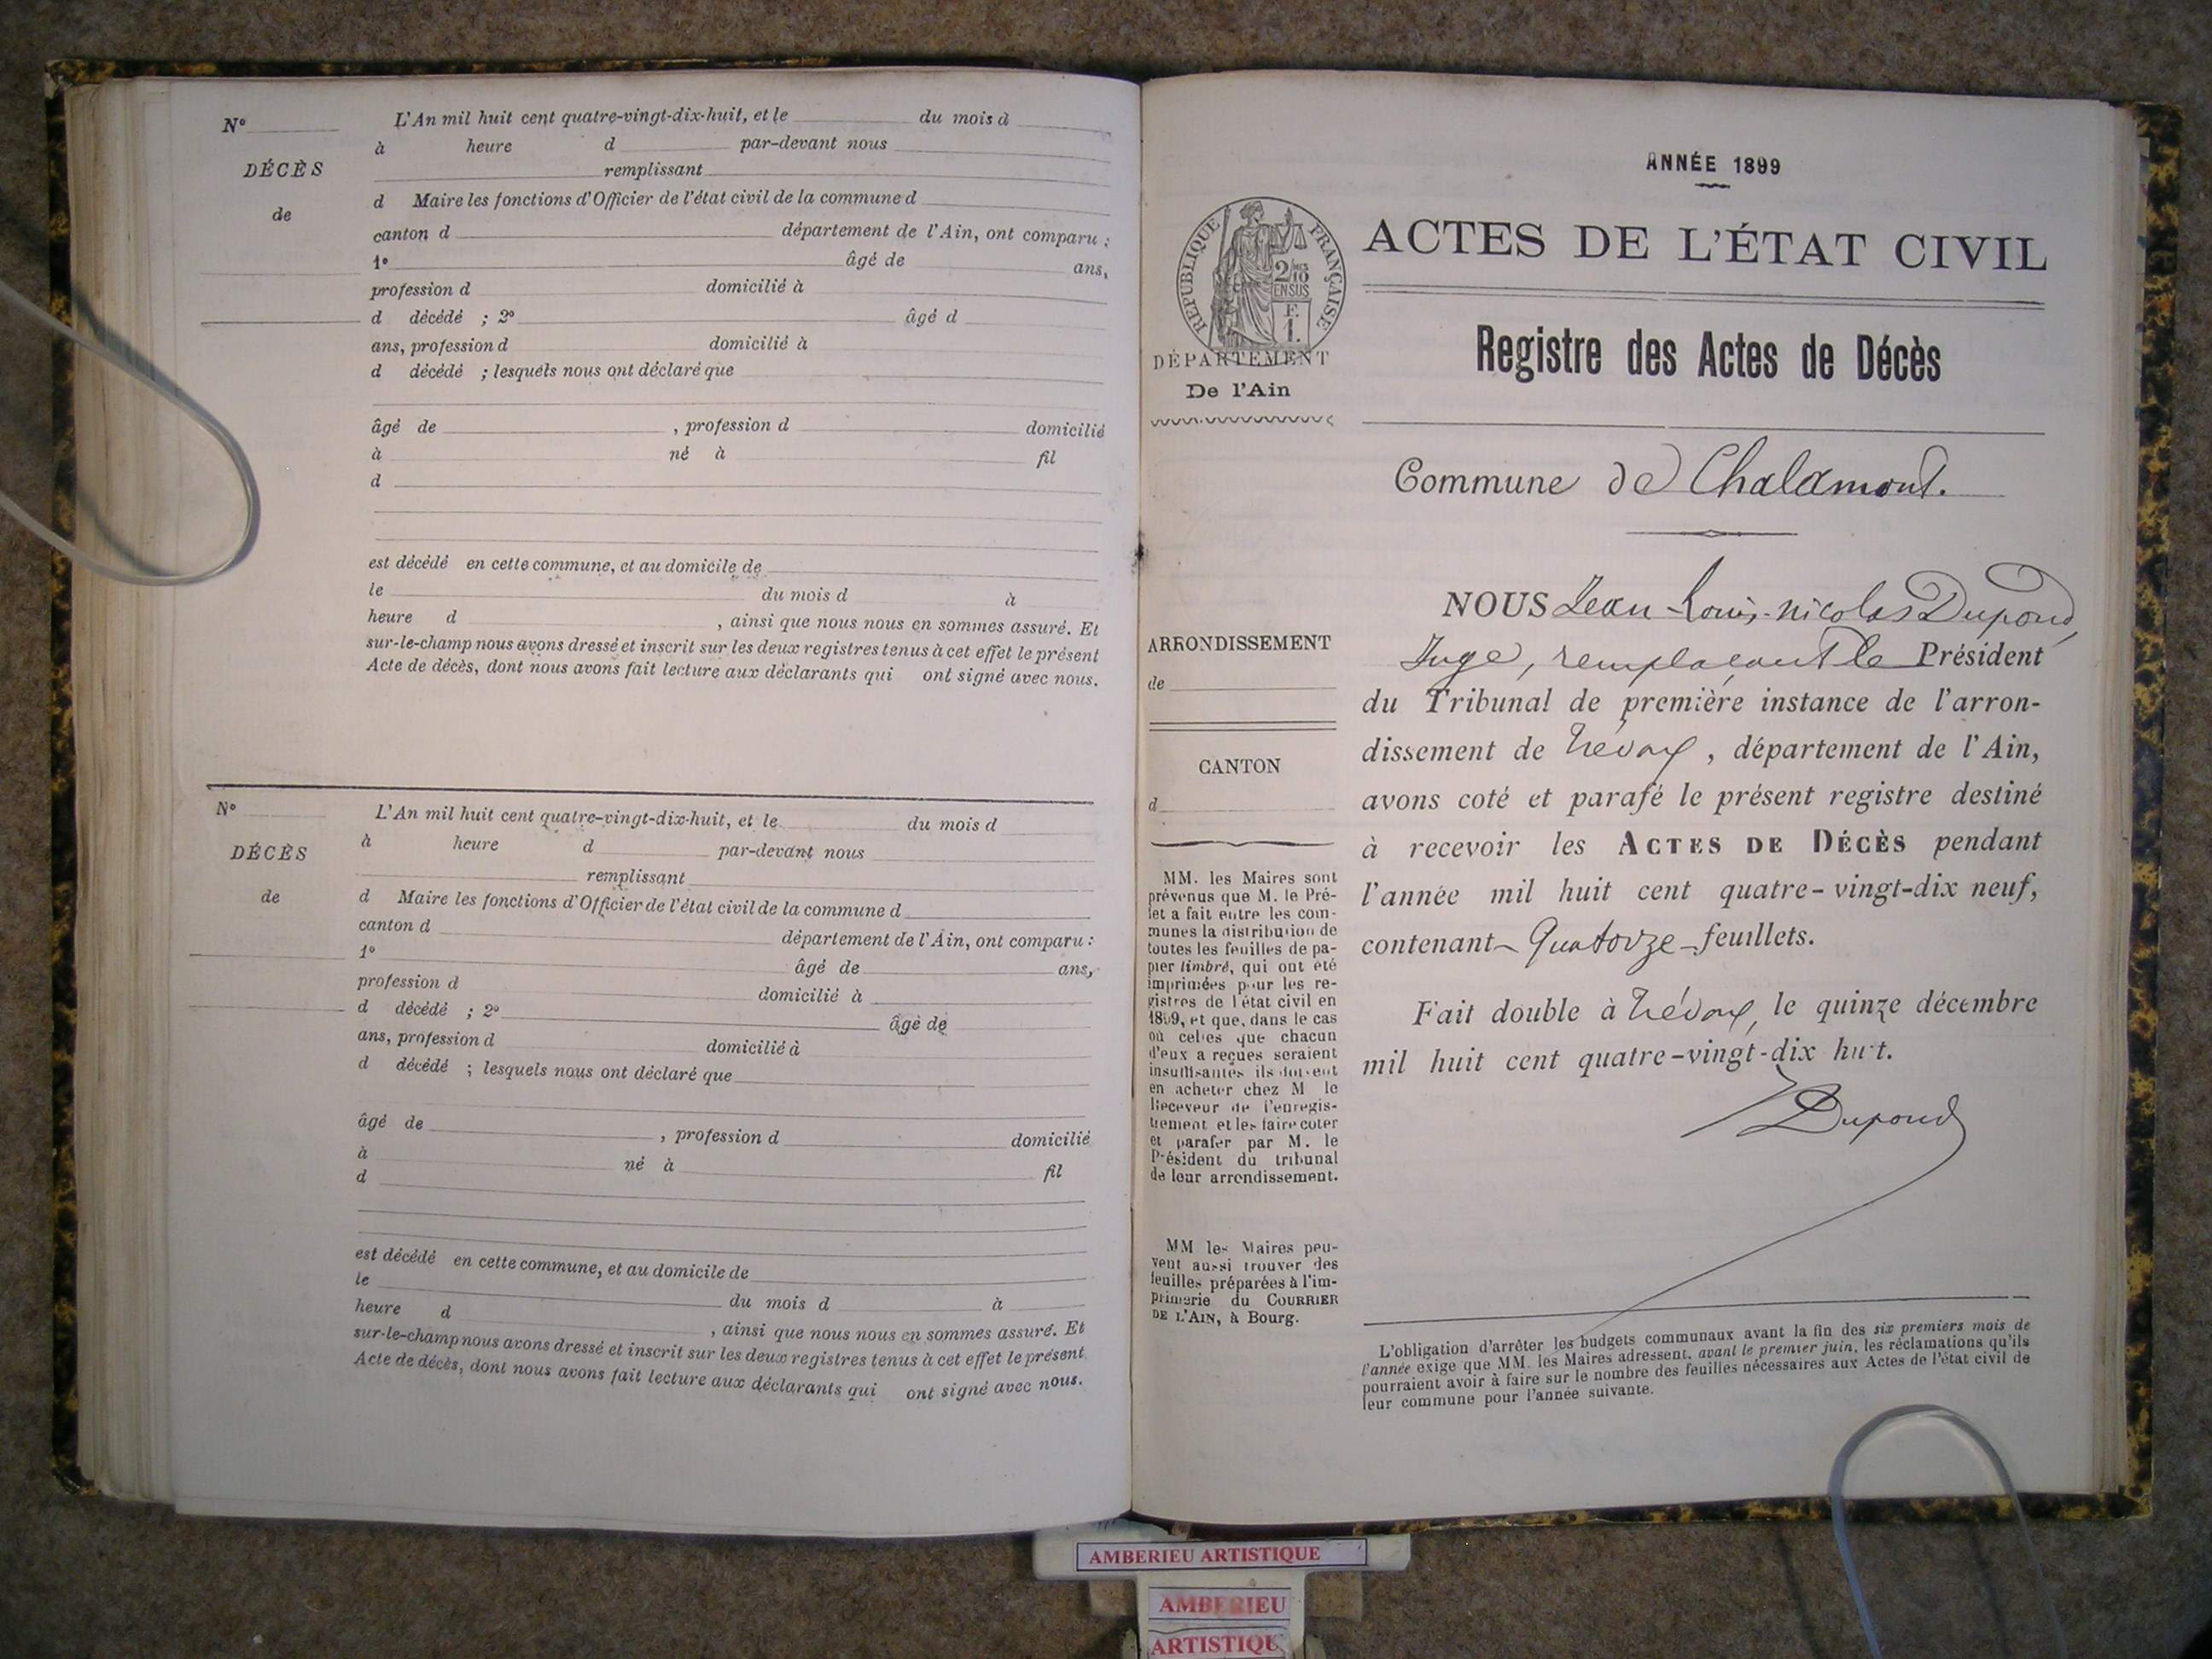 N°
DÉCÈS
de
L'An mil huit cent quatre-vingt-dix-huit, et le du mois d
à heure d par-devant nous
remplissant
d Maire les fonctions d'Officier de l'état civil de la commune d
canton d département de l'Ain, ont comparu :
1° âgé de ans,
profession d domicilié à
d décédé ; 2° âgé d
ans, profession d domicilié à
d décédé ; lesquels nous ont déclaré que
âgé de , profession d domicilié
à né à fil
d
est décédé en cette commune, et au domicile de
le du mois d à
heure d , ainsi que nous nous en sommes assuré. Et
sur-le-champ nous avons dressé et inscrit sur les deux registres tenus à cet effet le présent
Acte de décès, dont nous avons fait lecture aux déclarants qui ont signé avec nous.
N°
DÉCÈS
de
L'An mil huit cent quatre-vingt-dix-huit, et le du mois d
à heure d par-devant nous
remplissant
d Maire les fonctions d'Officier de l'état civil de la commune d
canton d département de l'Ain, ont comparu :
1° âgé de ans,
profession d domicilié à
d décédé ; 2° âgé de
ans, profession d domicilié à
d décédé ; lesquels nous ont déclaré que
âgé de , profession d domicilié
à né à fil
d
est décédé en cette commune, et au domicile de
le du mois d à
heure d , ainsi que nous nous en sommes assuré. Et
sur-le-champ nous avons dressé et inscrit sur les deux registres tenus à cet effet le présent
Acte de décès, dont nous avons fait lecture aux déclarants qui ont signé avec nous.
RÉPUBLIQUE FRANÇAISE
2/10 MES
EN SUS
F.
1.
DÉPARTEMENT
De l'Ain
ARRONDISSEMENT
de
CANTON
d
MM. les Maires sont
prévenus que M. le Pré-
fet a fait entre les com-
munes la distribution de
toutes les feuilles de pa-
pier timbré, qui ont été
imprimées pour les re-
gistres de l'état civil en
1899, et que, dans le cas
où celles que chacun
d'eux a reçues seraient
insuffisantes ils doivent
en acheter chez M le
Receveur de l'enregis-
trement et les faire coter
et parafer par M. le
Président du tribunal
de leur arrondissement.
MM les Maires peu-
vent aussi trouver des
feuilles préparées à l'im-
primerie du COURRIER
DE L'AIN, à Bourg.
ANNÉE 1899
ACTES DE L'ÉTAT CIVIL
Registre des Actes de Décès
Commune de Chalamont.
NOUS Jean-Louis-Nicolas Dupond,
Juge, remplaçant le Président
du Tribunal de première instance de l'arron-
dissement de Trévoux, département de l'Ain,
avons coté et parafé le présent registre destiné
à recevoir les ACTES DE DÉCÈS pendant
l'année mil huit cent quatre-vingt-dix neuf,
contenant Quatorze feuillets.
Fait double à Trévoux, le quinze décembre
mil huit cent quatre-vingt-dix huit.
Dupond
L'obligation d'arrêter les budgets communaux avant la fin des six premiers mois de
l'année exige que MM. les Maires adressent, avant le premier juin, les réclamations qu'ils
pourraient avoir à faire sur le nombre des feuilles nécessaires aux Actes de l'état civil de
leur commune pour l'année suivante.
AMBERIEU ARTISTIQUE
AMBERIEU
ARTISTIQU